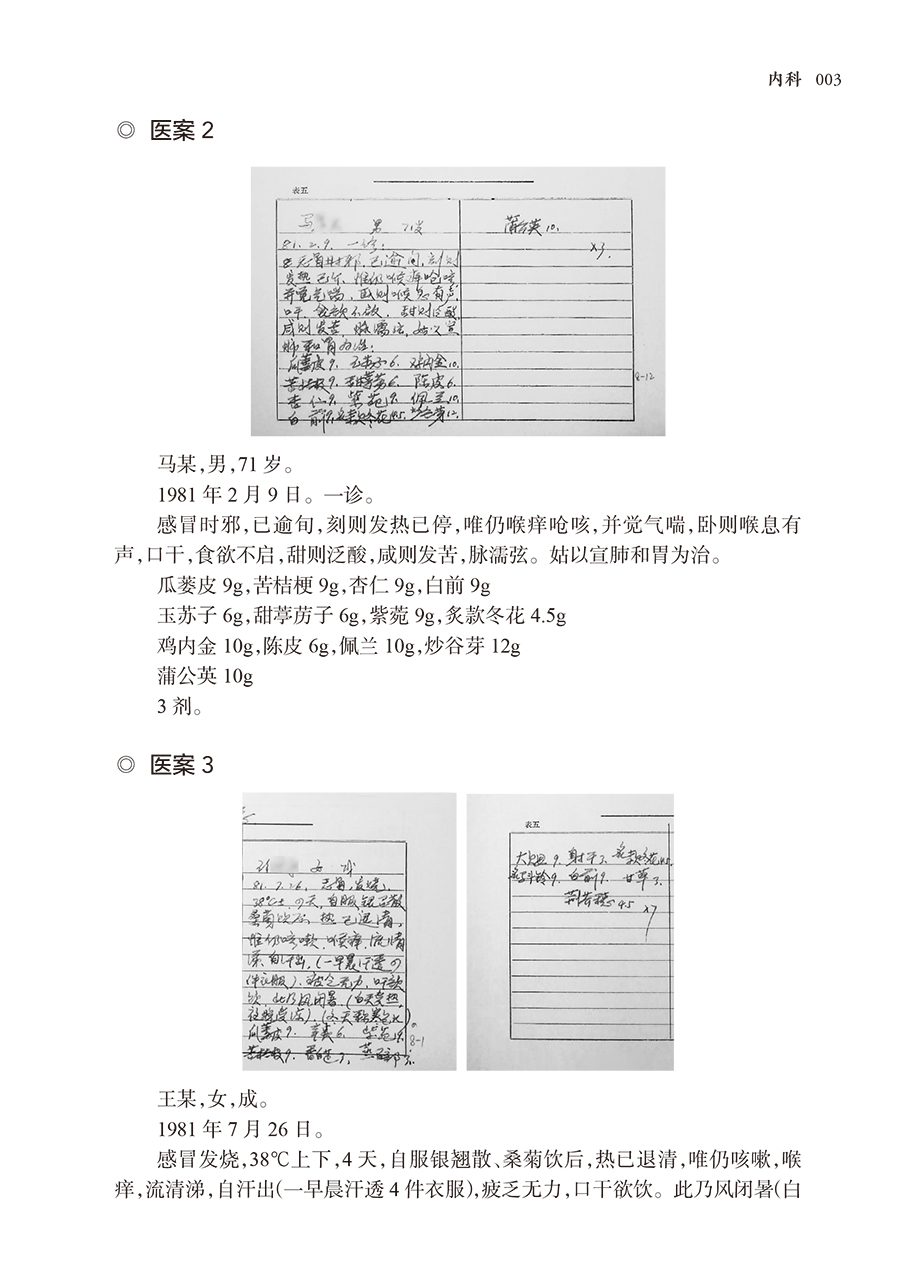 内科 003
◎ 医案 2
表五
马 男 71岁
81.2.9. 一诊:
发热已停, 惟仍喉痒呛咳
并觉气喘, 卧则喉息有声,
口干, 食欲不启, 甜则泛酸
咸则发苦, 脉濡弦, 姑以宣
肺和胃为治:
瓜蒌皮9. 玉苏子6. 鸡内金10.
苦桔梗9. 甜葶苈6. 陈皮6.
杏仁9. 紫菀9. 佩兰10.
白前9. 炙款冬花4.5. 炒谷芽12.
蒲公英10.
x3.
8-12
马某,男,71 岁。
1981 年 2 月 9 日。一诊。
感冒时邪,已逾旬,刻则发热已停,唯仍喉痒呛咳,并觉气喘,卧则喉息有
声,口干,食欲不启,甜则泛酸,咸则发苦,脉濡弦。姑以宣肺和胃为治。
瓜蒌皮 9g,苦桔梗 9g,杏仁 9g,白前 9g
玉苏子 6g,甜葶苈子 6g,紫菀 9g,炙款冬花 4.5g
鸡内金 10g,陈皮 6g,佩兰 10g,炒谷芽 12g
蒲公英 10g
3 剂。
◎ 医案 3
女 成
81.7.26. 感冒, 发烧,
38℃±, 4天, 自服银翘散
桑菊饮后, 热已退清,
惟仍咳嗽, 喉痒, 流清
涕, 自汗出, (一早晨汗透4
件衣服), 疲乏无力, 口干欲
饮, 此乃风闭暑, (白天受热,
瓜蒌皮9. 紫菀9.
苦桔梗9.
8-1
表五
射干3. 炙款冬花4.5.
白前9. 甘草3.
荆芥穗4.5
x7
王某,女,成。
1981 年 7 月 26 日。
感冒发烧,38℃上下,4 天,自服银翘散、桑菊饮后,热已退清,唯仍咳嗽,喉
痒,流清涕,自汗出(一早晨汗透 4 件衣服),疲乏无力,口干欲饮。此乃风闭暑(白